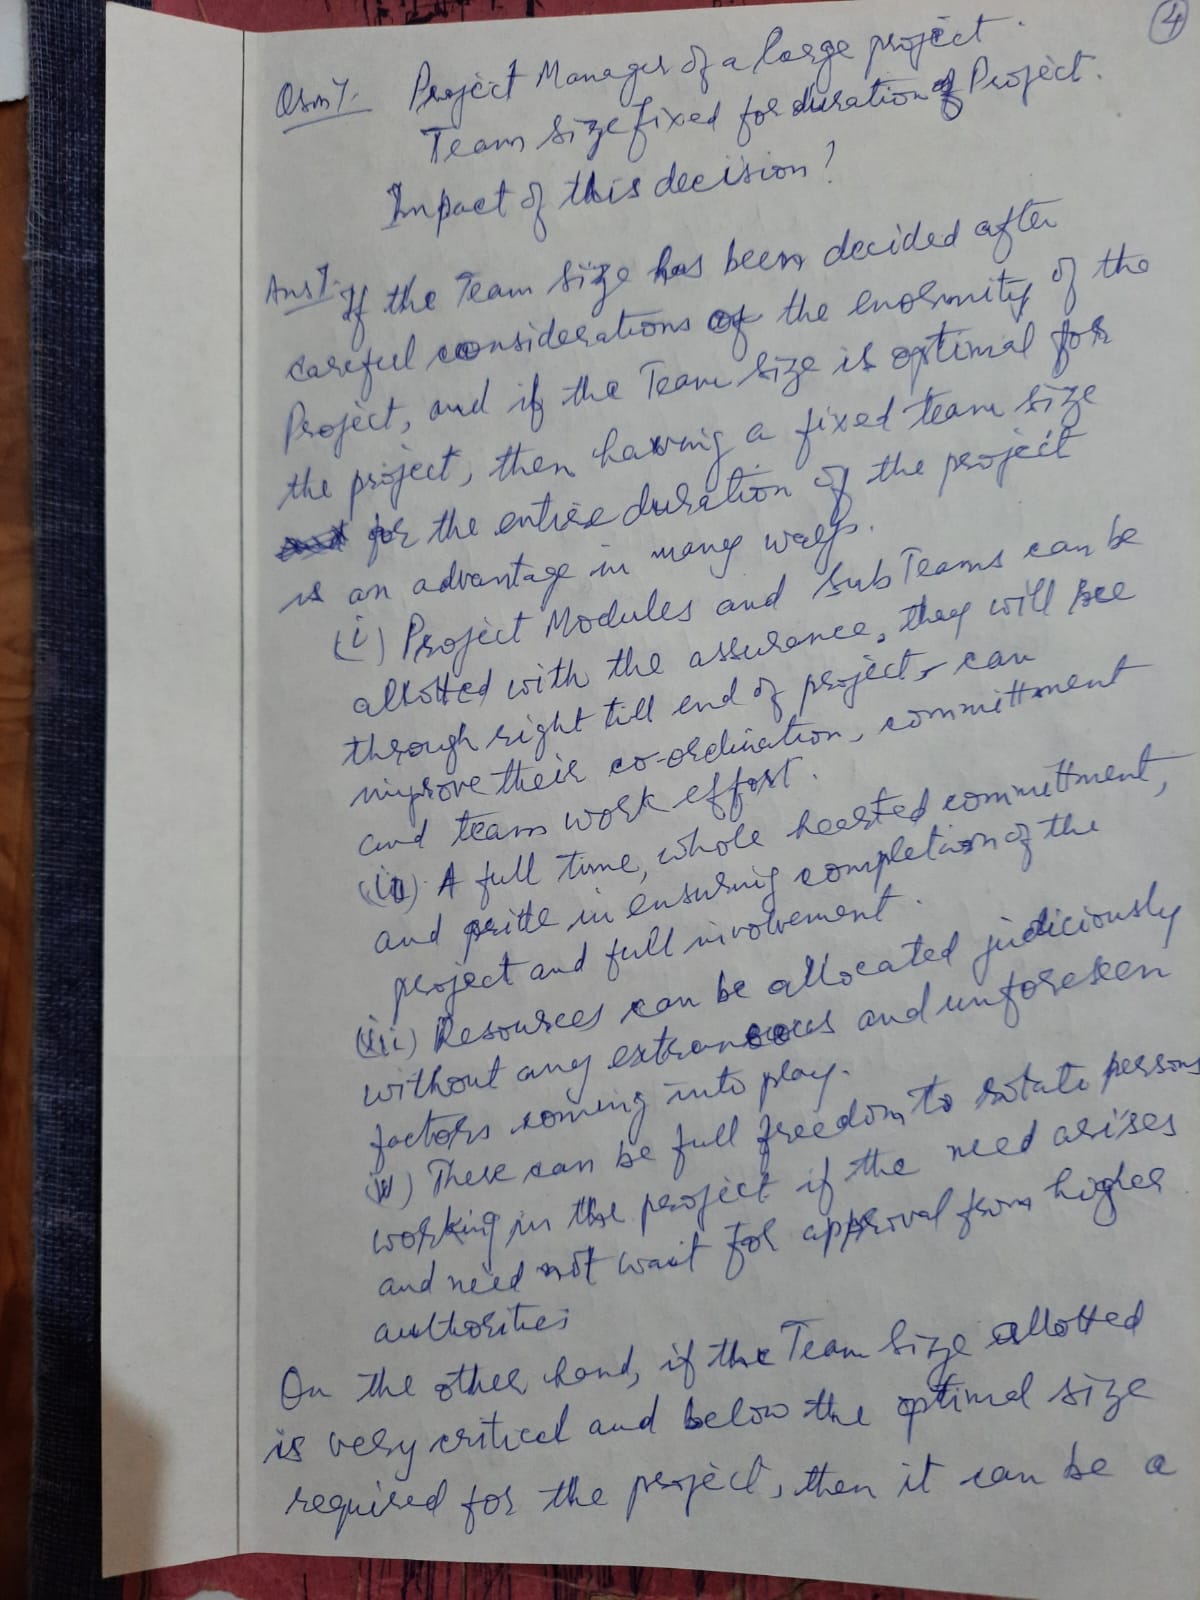 4
Qsn 7. Project Manager of a large project.
Team size fixed for duration of Project.
Impact of this decision?
Ans 7. If the Team size has been decided after
careful considerations of the enormity of the
Project, and if the Team size is optimal for
the project, then having a fixed team size
for the entire duration of the project
is an advantage in many ways.
(i) Project Modules and sub Teams can be
allotted with the assurance, they will see
through right till end of project, can
improve their co-ordination, committment
and team work effort.
(ii) A full time, whole hearted committment,
and pride in ensuring completion of the
project and full involvement.
(iii) Resources can be allocated judiciously
without any extraneous and unforeseen
factors coming into play.
(iv) There can be full freedom to rotate persons
working in the project if the need arises
and need not wait for approval from higher
authorities
On the other hand, if the Team size allotted
is very critical and below the optimal size
required for the project, then it can be a